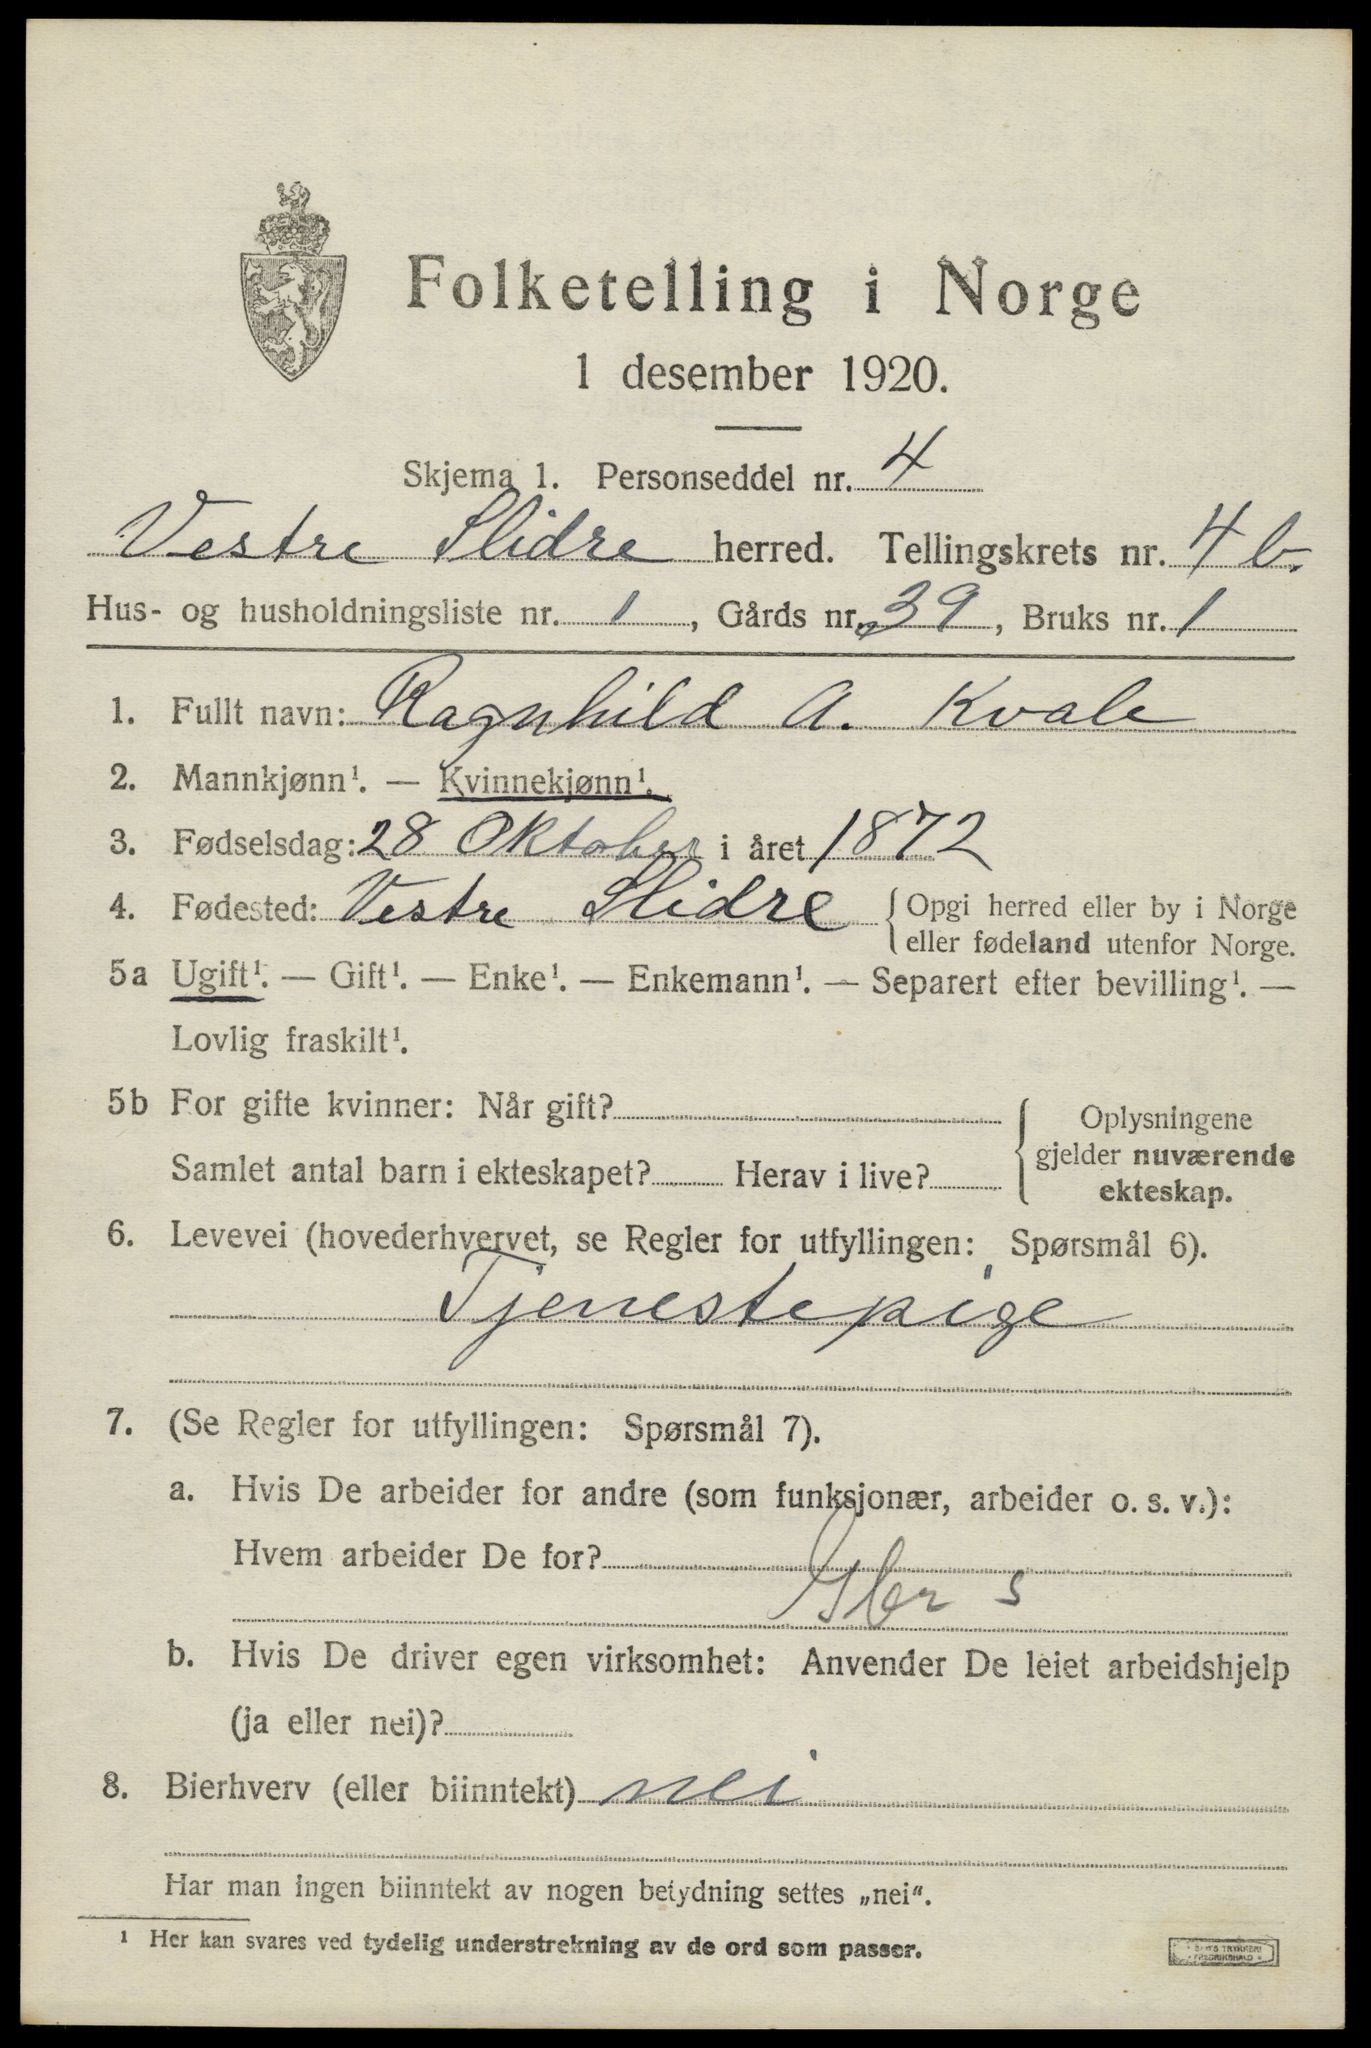 Folketelling i Norge
1 desember 1920.
Skjema 1. Personseddel nr. 4
Vestre Slidre herred. Tellingskrets nr. 4 b.
Hus- og husholdningsliste nr. 1, Gårds nr. 39, Bruks nr. 1
1. Fullt navn: Ragnhild A. Kvale
2. Mannkjønn¹. — Kvinnekjønn¹.
3. Fødselsdag: 28 Oktober i året 1872
4. Fødested: Vestre Slidre { Opgi herred eller by i Norge
eller fødeland utenfor Norge.
5a Ugift¹. — Gift¹. — Enke¹. — Enkemann¹. — Separert efter bevilling¹. —
Lovlig fraskilt¹.
5b For gifte kvinner: Når gift?
Samlet antal barn i ekteskapet? Herav i live?
{ Oplysningene
gjelder nuværende
ekteskap.
6. Levevei (hovederhvervet, se Regler for utfyllingen: Spørsmål 6).
Tjenestepige
7. (Se Regler for utfyllingen: Spørsmål 7).
a. Hvis De arbeider for andre (som funksjonær, arbeider o. s. v.):
Hvem arbeider De for?
Gbr s
b. Hvis De driver egen virksomhet: Anvender De leiet arbeidshjelp
(ja eller nei)?
8. Bierhverv (eller biinntekt) nei
Har man ingen biinntekt av nogen betydning settes „nei“.
¹ Her kan svares ved tydelig understrekning av de ord som passer.